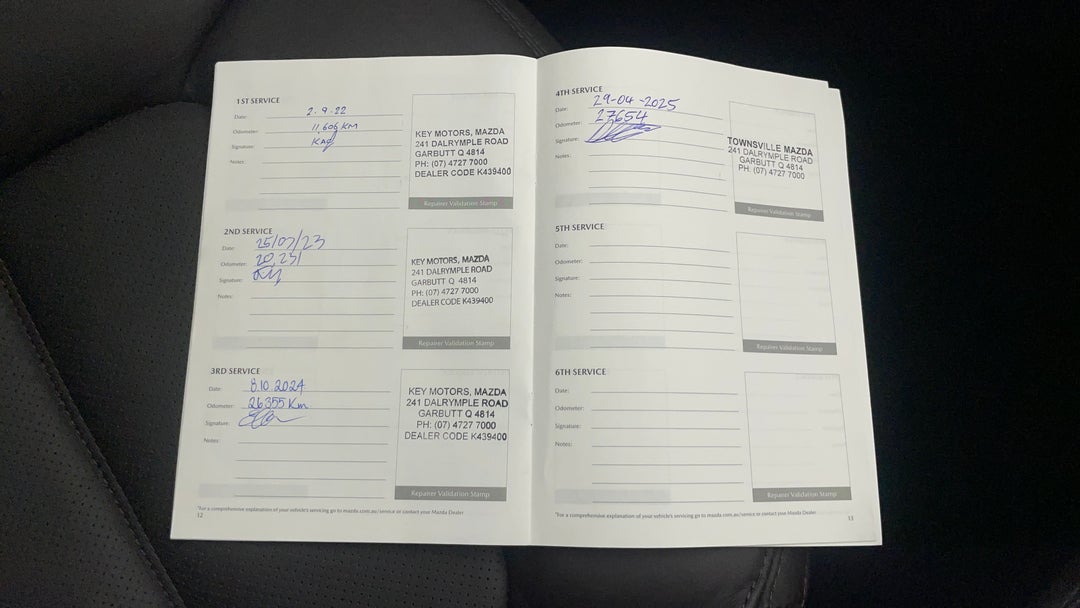 1ST SERVICE
Date: 2.9.22
Odometer: 11,606 KM
Signature:
Notes:
KEY MOTORS, MAZDA
241 DALRYMPLE ROAD
GARBUTT Q 4814
PH: (07) 4727 7000
DEALER CODE K439400
Repairer Validation Stamp
2ND SERVICE
Date: 25/07/23
Odometer: 20,231
Signature:
Notes:
KEY MOTORS, MAZDA
241 DALRYMPLE ROAD
GARBUTT Q 4814
PH: (07) 4727 7000
DEALER CODE K439400
Repairer Validation Stamp
3RD SERVICE
Date: 8.10.2024
Odometer: 26355 Km
Signature:
Notes:
KEY MOTORS, MAZDA
241 DALRYMPLE ROAD
GARBUTT Q 4814
PH: (07) 4727 7000
DEALER CODE K439400
Repairer Validation Stamp
*For a comprehensive explanation of your vehicle's servicing go to mazda.com.au/service or contact your Mazda Dealer
12
4TH SERVICE
Date: 29-04-2025
Odometer: 27654
Signature:
Notes:
TOWNSVILLE MAZDA
241 DALRYMPLE ROAD
GARBUTT Q 4814
PH. (07) 4727 7000
Repairer Validation Stamp
5TH SERVICE
Date:
Odometer:
Signature:
Notes:
Repairer Validation Stamp
6TH SERVICE
Date:
Odometer:
Signature:
Notes:
Repairer Validation Stamp
*For a comprehensive explanation of your vehicle's servicing go to mazda.com.au/service or contact your Mazda Dealer
13